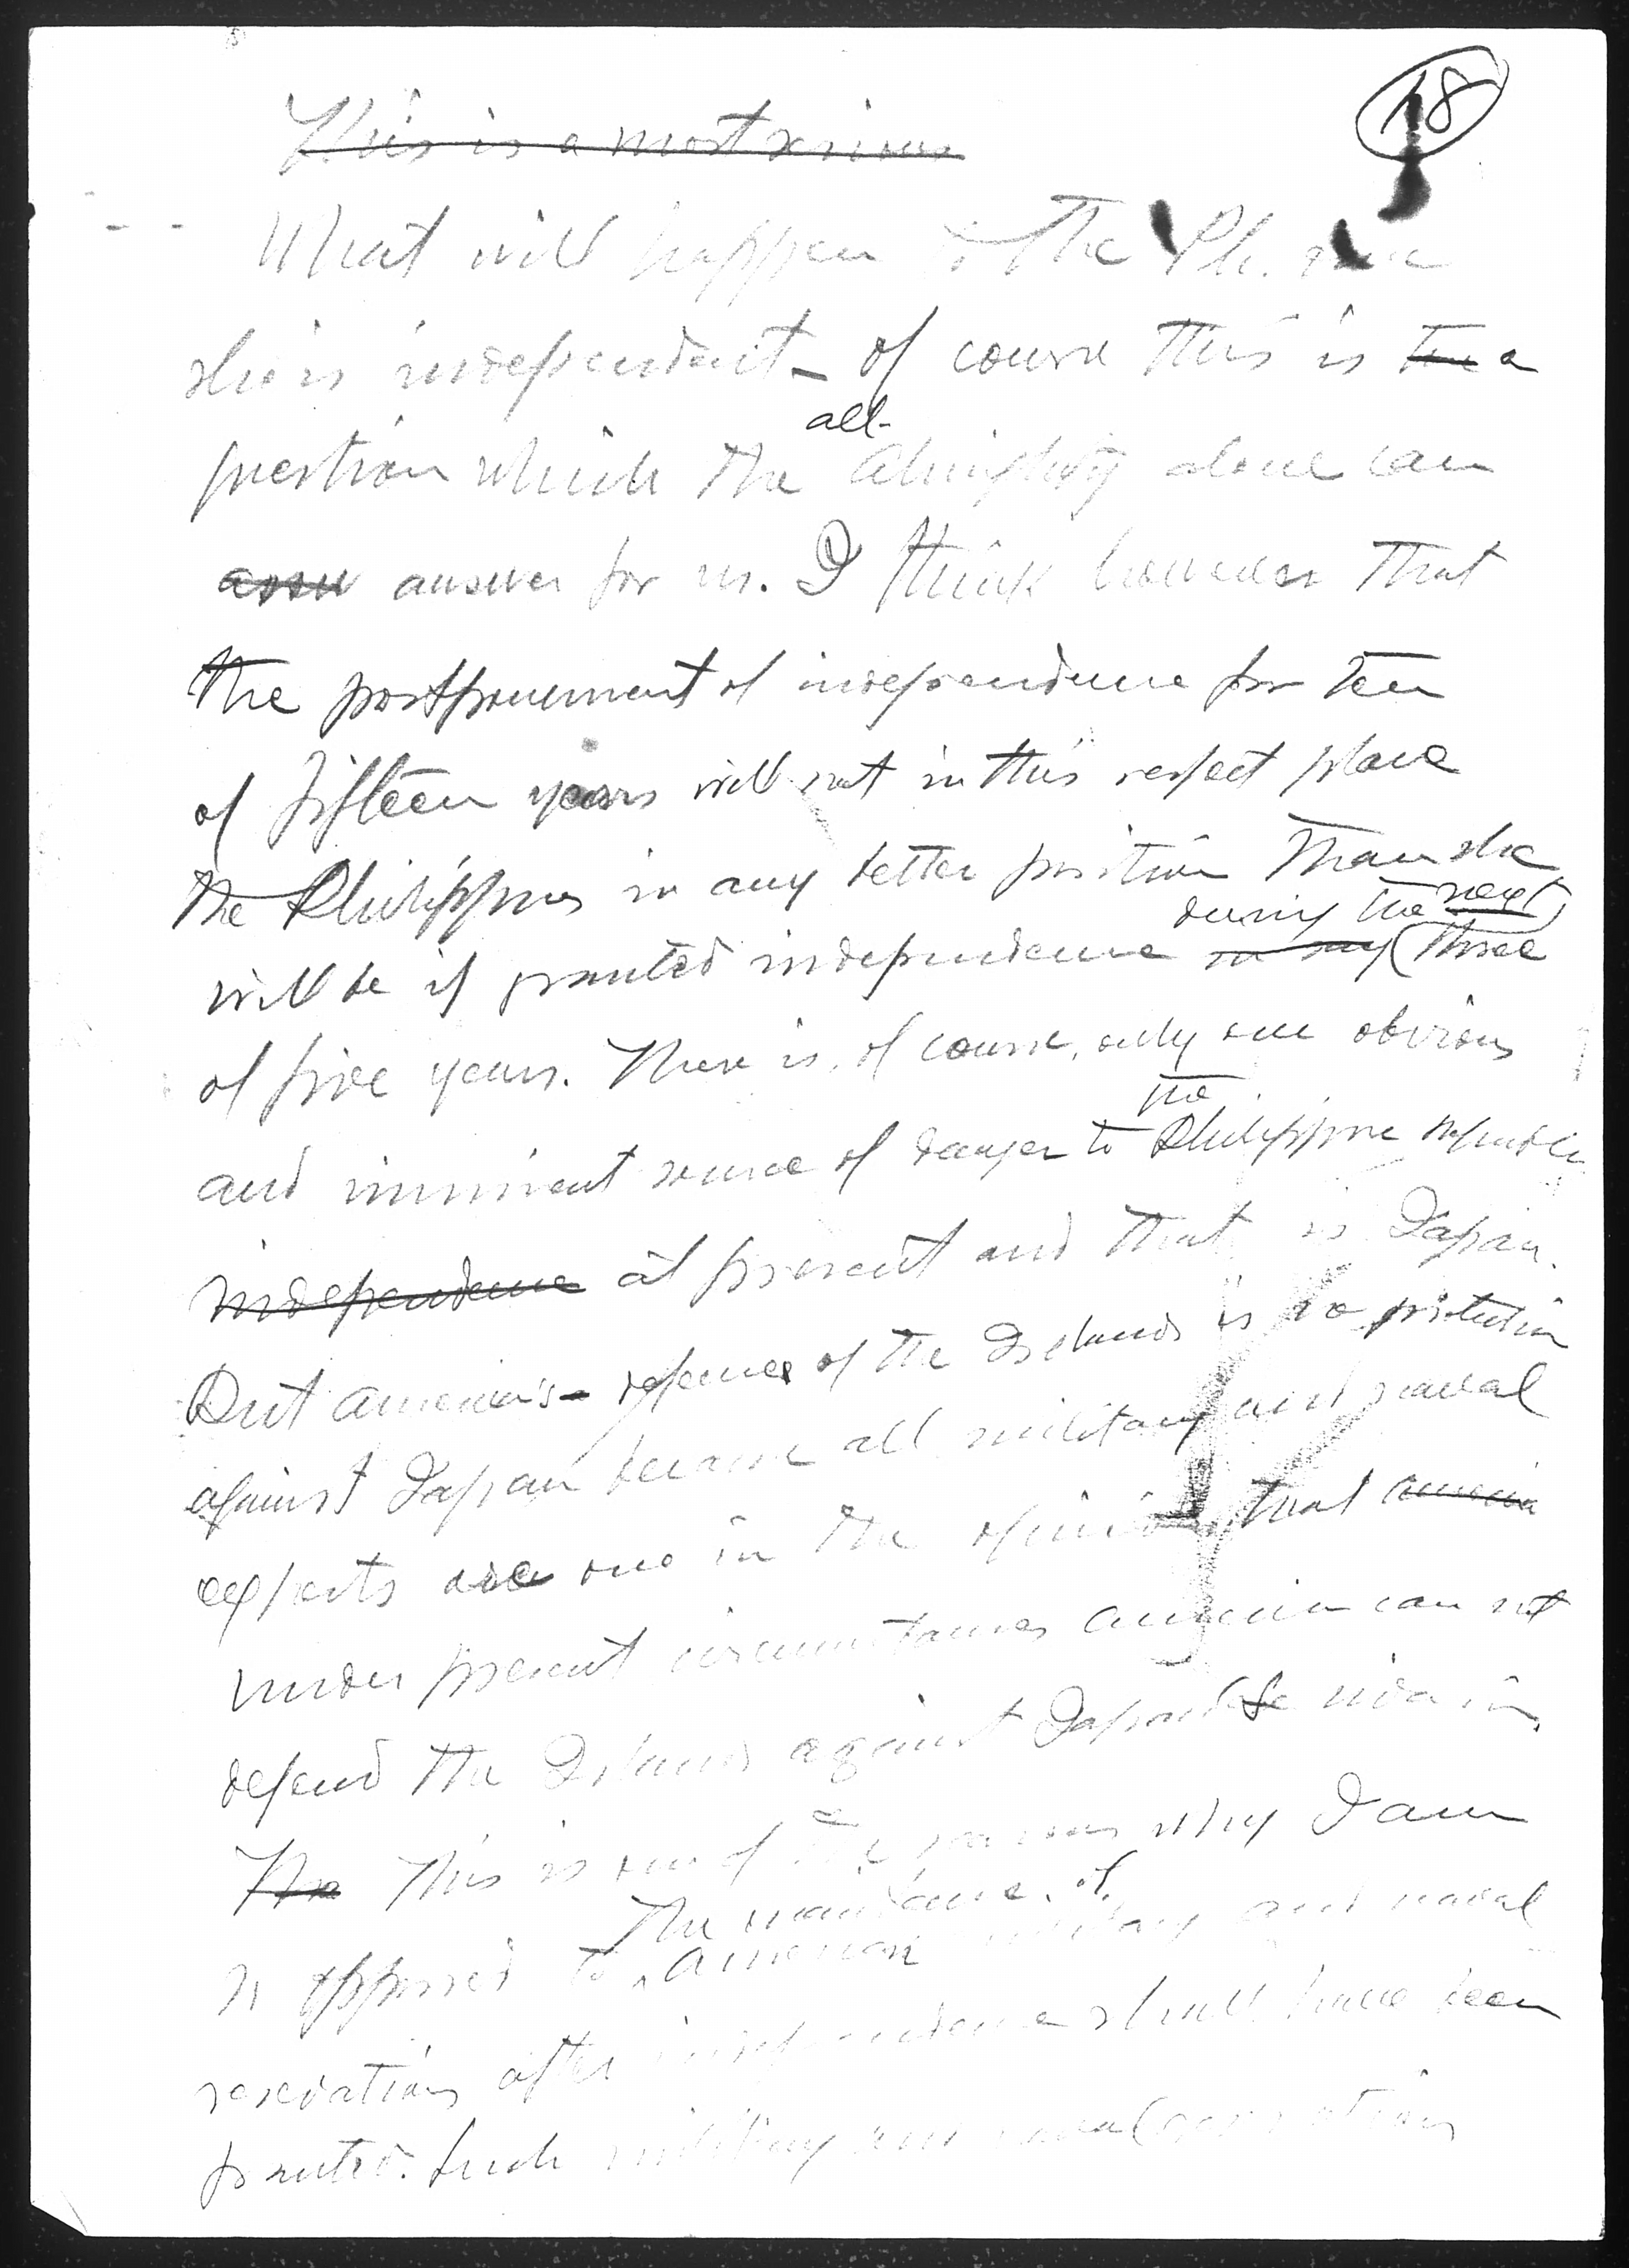 18
This is a most serious
What will happen to the Ph. once
she is independent - of course this is the a
question which the all-
Almighty alone can
answ answer for us. I think however that
the postponement of independence for ten
of fifteen years will not in this respect place
the Philippines in any better position than she
during the next
will be if granted independence in say (three
of five years. There is, of course, only one obvious
the
and imminent source of danger to Philippine republic
independence at present and that is Japan.
But America's defense of the Islands is no protection
against Japan because all military and naval
experts are one in the opinion that America
under present circumstances America can not
defend the Islands against Japanese invasion.
The This is one of the reasons why I am
the maintenance of
opposed to American military and naval
reservations after independence shall have been
granted. Such military and naval reservations